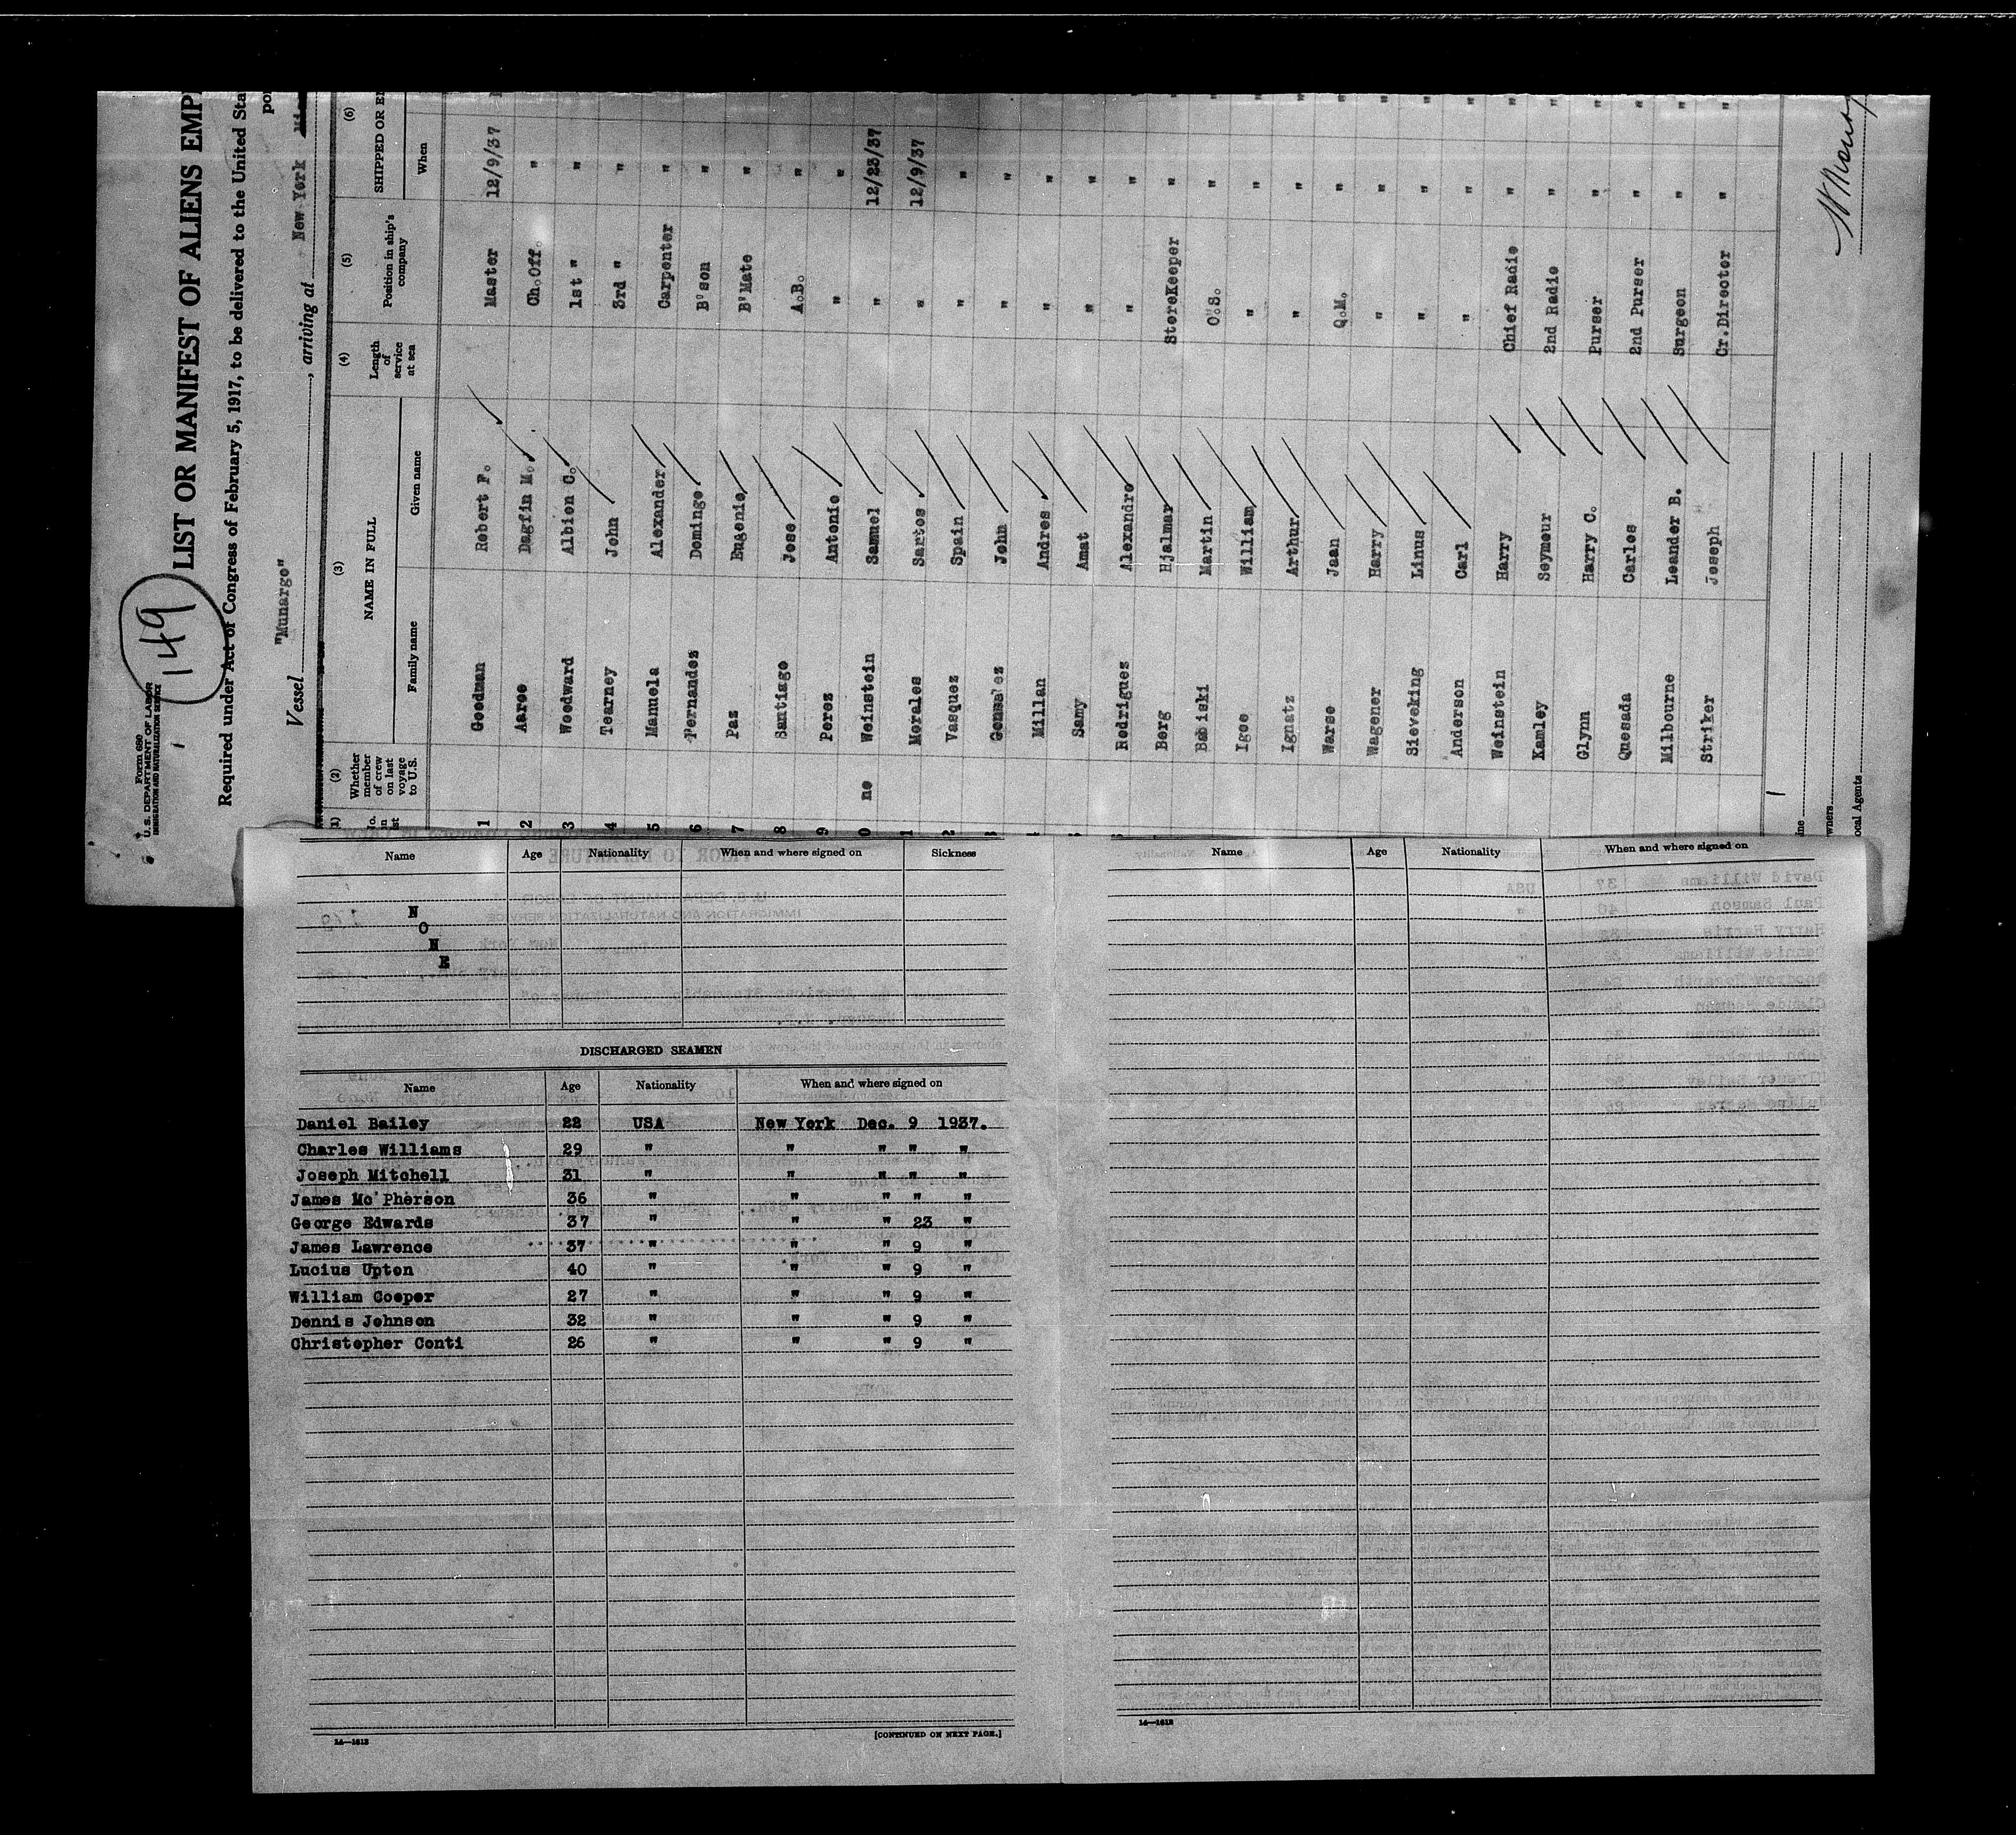 Form 680
U. S. DEPARTMENT OF LABOR
IMMIGRATION AND NATURALIZATION SERVICE
149
LIST OR MANIFEST OF ALIENS EMP
Required under Act of Congress of February 5, 1917, to be delivered to the United Sta
Vessel "Munargo", arriving at New York
(1) (2) (3) (4) (5) (6)
Whether member of crew on last voyage to U.S. NAME IN FULL Length of service at sea Position in ship's company SHIPPED OR E
Family name Given name When
1 Goodman Robert F. Master 12/9/37
2 Aaroe Dagfin M. Ch.Off. "
3 Woodward Albion C. 1st " "
4 Tearney John 3rd " "
5 Manuela Alexander Carpenter "
6 Fernandez Domingo B'son "
7 Paz Eugenio B'Mate "
8 Santiago Jose A.B. "
9 Perez Antonio " "
0 no Weinstein Samuel " 12/23/37
1 Morales Santos " 12/9/37
2 Vasquez Spain " "
Gonzalez John " "
Millan Andres " "
Samy Amat " "
Rodriguez Alexandro " "
Berg Hjalmar StoreKeeper "
Babiski Martin O.S. "
Igoe William " "
Ignatz Arthur " "
Warso Jaan Q.M. "
Wagener Harry " "
Sieveking Linus " "
Anderson Carl " "
Weinstein Harry Chief Radio "
Kamley Seymour 2nd Radio "
Glynn Harry C. Purser "
Quesada Carlos 2nd Purser "
Milbourne Leander B. Surgeon "
Striker Joseph Cr.Director "
wners
ocal Agents
Name Age Nationality When and where signed on Sickness
N
O
N
E
DISCHARGED SEAMEN
Name Age Nationality When and where signed on
Daniel Bailey 22 USA New York Dec. 9 1937.
Charles Williams 29 " " " " "
Joseph Mitchell 31 " " " " "
James Mc'Pherson 36 " " " " "
George Edwards 37 " " " 23 "
James Lawrence 37 " " " 9 "
Lucius Upton 40 " " " 9 "
William Cooper 27 " " " 9 "
Dennis Johnson 32 " " " 9 "
Christopher Conti 26 " " " 9 "
14—1613
[CONTINUED ON NEXT PAGE.]
Name Age Nationality When and where signed on
14—1613